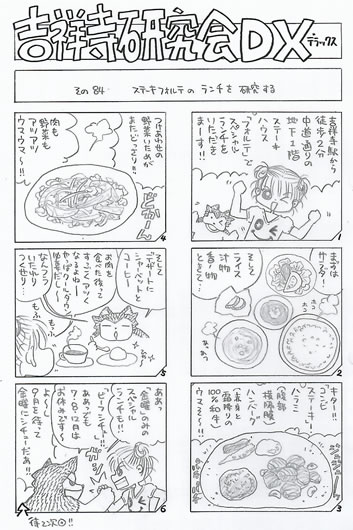 吉祥寺研究会DX
デラックス
その84 ステーキフォルテのランチを研究する
吉祥寺駅から
徒歩2分
中道通りの
地下1階
ステーキ
ハウス
「フォルテ」で
スペシャル
ランチを
いただき
1
まずは
サラダ!
そして
ライス
汁物
香物
ときてっ
ホコ
ホコ
あっあっ
2
キター!!
「ステーキ」
ハラミ
(腹部
横隔膜)
と
赤身と
霜降りの
ハンバーグ
100%和牛
ウマそ〜!!
3
つけあわせの
野菜いためが
またどっさり!!
肉も
野菜も
アツアツ
ウマウマ〜!!
どかーん
4
そして
デザートに
シャーベットと
コーヒー
お肉を
食べた後って
すっごくアツく
なるよねー
やっぱクールダウン
は必要だし!!
なんつう
いたれり
つくせり…
もふ
もふ
5
ああっ
「金曜」のみの
スペシャル
ランチも!!
「ビーフシチュー」
ああっでも
7・8月は
お休みです〜
よ〜く
9月を待って
金曜にシチューだぁ!!
6
待て次回!!